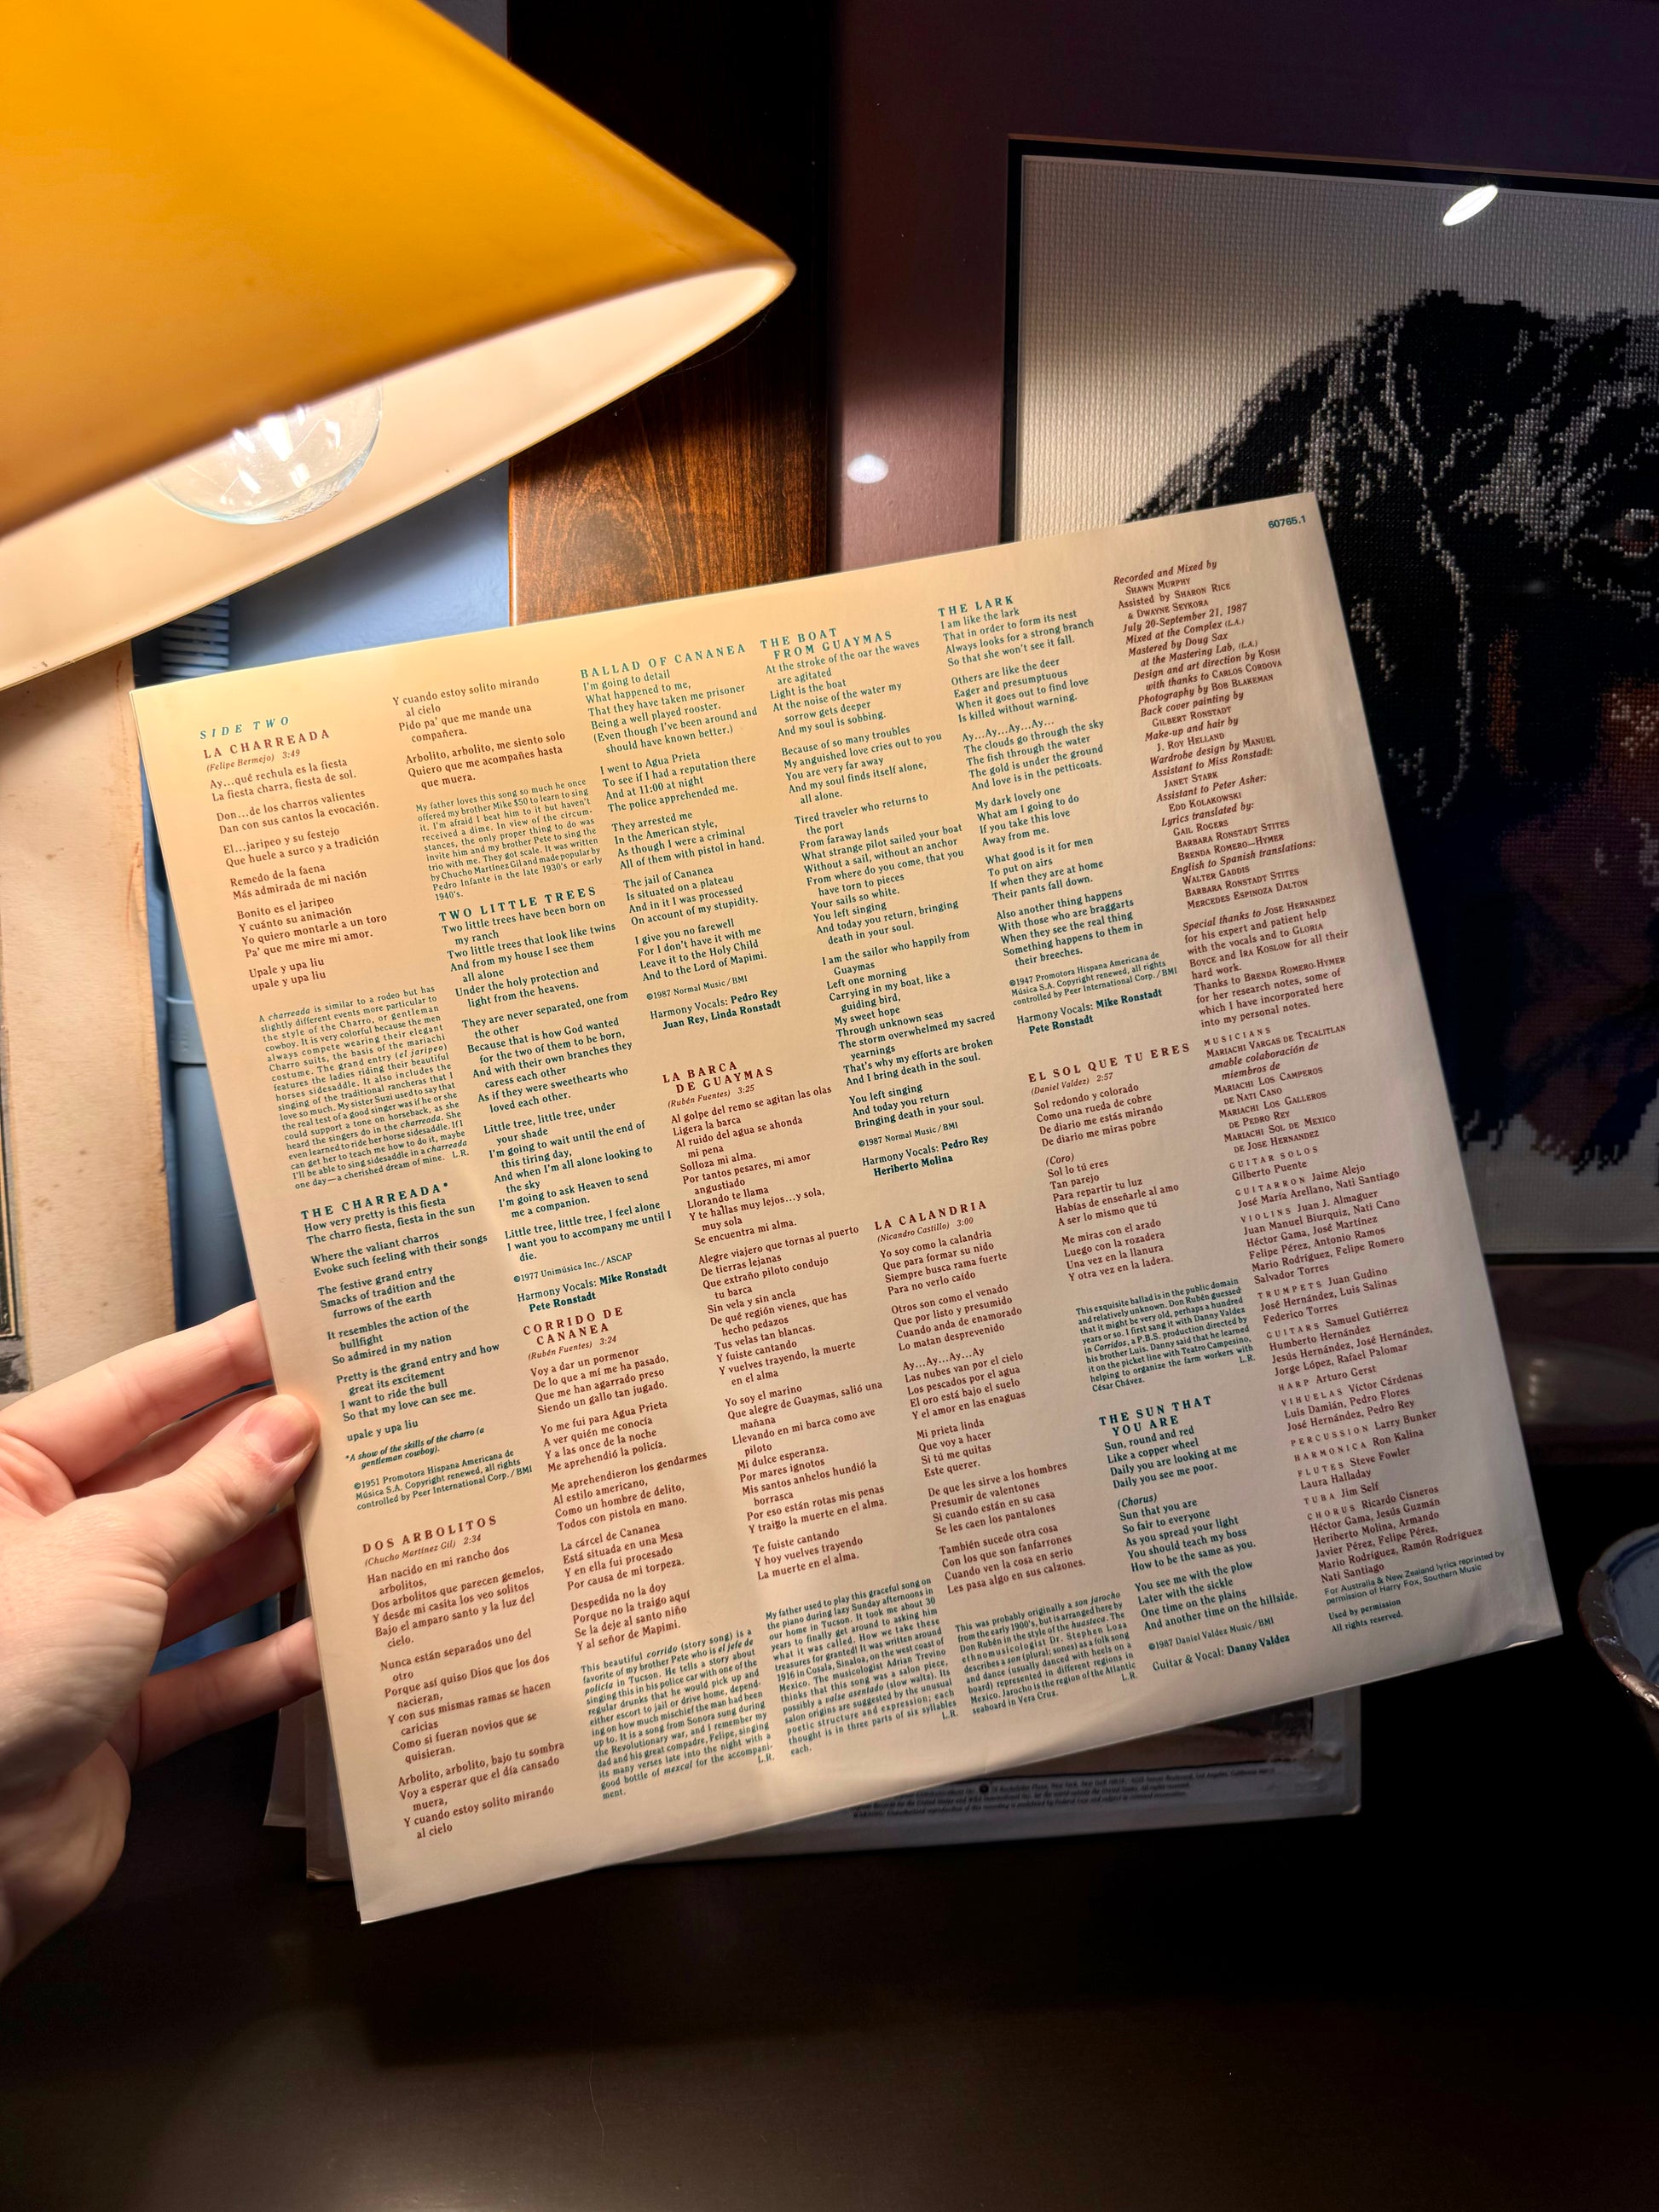 60765.1
SIDE TWO
LA CHARREADA
(Felipe Bermejo) 3:49
Ay...qué rechula es la fiesta
La fiesta charra, fiesta de sol.
Don...de los charros valientes
Dan con sus cantos la evocación.
El...jaripeo y su festejo
Que huele a surco y a tradición
Remedo de la faena
Más admirada de mi nación
Bonito es el jaripeo
Y cuánto su animación
Yo quiero montarle a un toro
Pa' que me mire mi amor.
Upale y upa liu
upale y upa liu
A charreada is similar to a rodeo but has
slightly different events more particular to
the style of the Charro, or gentleman
cowboy. It is very colorful because the men
always compete wearing their elegant
Charro suits, the basis of the mariachi
costume. The grand entry (el jaripeo)
features the ladies riding their beautiful
horses sidesaddle. It also includes the
singing of the traditional rancheras that I
love so much. My sister Suzi used to say that
the real test of a good singer was if he or she
could support a tone on horseback, as she
heard the singers do in the charreada. She
even learned to ride her horse sidesaddle. If I
can get her to teach me how to do it, maybe
I'll be able to sing sidesaddle in a charreada
one day—a cherished dream of mine. L.R.
THE CHARREADA*
How very pretty is this fiesta
The charro fiesta, fiesta in the sun
Where the valiant charros
Evoke such feeling with their songs
The festive grand entry
Smacks of tradition and the
furrows of the earth
It resembles the action of the
bullfight
So admired in my nation
Pretty is the grand entry and how
great its excitement
I want to ride the bull
So that my love can see me.
upale y upa liu
*A show of the skills of the charro (a
gentleman cowboy).
©1951 Promotora Hispana Americana de
Música S.A. Copyright renewed, all rights
controlled by Peer International Corp./BMI
DOS ARBOLITOS
(Chucho Martinez Gil) 2:34
Han nacido en mi rancho dos
arbolitos,
Dos arbolitos que parecen gemelos,
Y desde mi casita los veo solitos
Bajo el amparo santo y la luz del
cielo.
Nunca están separados uno del
otro
Porque así quiso Dios que los dos
nacieran,
Y con sus mismas ramas se hacen
caricias
Como si fueran novios que se
quisieran.
Arbolito, arbolito, bajo tu sombra
Voy a esperar que el día cansado
muera,
Y cuando estoy solito mirando
al cielo
Y cuando estoy solito mirando
al cielo
Pido pa' que me mande una
compañera.
Arbolito, arbolito, me siento solo
Quiero que me acompañes hasta
que muera.
My father loves this song so much he once
offered my brother Mike $50 to learn to sing
it. I'm afraid I beat him to it but haven't
received a dime. In view of the circum-
stances, the only proper thing to do was
invite him and my brother Pete to sing the
trio with me. They got scale. It was written
by Chucho Martínez Gil and made popular by
Pedro Infante in the late 1930's or early
1940's.
TWO LITTLE TREES
Two little trees have been born on
my ranch
Two little trees that look like twins
And from my house I see them
all alone
Under the holy protection and
light from the heavens.
They are never separated, one from
the other
Because that is how God wanted
for the two of them to be born,
And with their own branches they
caress each other
As if they were sweethearts who
loved each other.
Little tree, little tree, under
your shade
I'm going to wait until the end of
this tiring day,
And when I'm all alone looking to
the sky
I'm going to ask Heaven to send
me a companion.
Little tree, little tree, I feel alone
I want you to accompany me until I
die.
©1977 Unimúsica Inc./ASCAP
Harmony Vocals: Mike Ronstadt
Pete Ronstadt
CORRIDO DE
CANANEA
(Rubén Fuentes) 3:24
Voy a dar un pormenor
De lo que a mí me ha pasado,
Que me han agarrado preso
Siendo un gallo tan jugado.
Yo me fui para Agua Prieta
A ver quién me conocía
Y a las once de la noche
Me aprehendió la policía.
Me aprehendieron los gendarmes
Al estilo americano,
Como un hombre de delito,
Todos con pistola en mano.
La cárcel de Cananea
Está situada en una Mesa
Y en ella fui procesado
Por causa de mi torpeza.
Despedida no la doy
Porque no la traigo aquí
Se la deje al santo niño
Y al señor de Mapimi.
This beautiful corrido (story song) is a
favorite of my brother Pete who is el jefe de
policía in Tucson. He tells a story about
singing this in his police car with one of the
regular drunks that he would pick up and
either escort to jail or drive home, depend-
ing on how much mischief the man had been
up to. It is a song from Sonora sung during
the Revolutionary war, and I remember my
dad and his great compadre, Felipe, singing
its many verses late into the night with a
good bottle of mexcal for the accompani-
ment. L.R.
BALLAD OF CANANEA
I'm going to detail
What happened to me,
That they have taken me prisoner
Being a well played rooster.
(Even though I've been around and
should have known better.)
I went to Agua Prieta
To see if I had a reputation there
And at 11:00 at night
The police apprehended me.
They arrested me
In the American style,
As though I were a criminal
All of them with pistol in hand.
The jail of Cananea
Is situated on a plateau
And in it I was processed
On account of my stupidity.
I give you no farewell
For I don't have it with me
Leave it to the Holy Child
And to the Lord of Mapimi.
©1987 Normal Music/BMI
Harmony Vocals: Pedro Rey
Juan Rey, Linda Ronstadt
LA BARCA
DE GUAYMAS
(Rubén Fuentes) 3:25
Al golpe del remo se agitan las olas
Ligera la barca
Al ruido del agua se ahonda
mi pena
Solloza mi alma.
Por tantos pesares, mi amor
angustiado
Llorando te llama
Y te hallas muy lejos...y sola,
muy sola
Se encuentra mi alma.
Alegre viajero que tornas al puerto
De tierras lejanas
Que extraño piloto condujo
tu barca
Sin vela y sin ancla
De qué región vienes, que has
hecho pedazos
Tus velas tan blancas.
Y fuiste cantando
Y vuelves trayendo, la muerte
en el alma
Yo soy el marino
Que alegre de Guaymas, salió una
mañana
Llevando en mi barca como ave
piloto
Mi dulce esperanza.
Por mares ignotos
Mis santos anhelos hundió la
borrasca
Por eso están rotas mis penas
Y traigo la muerte en el alma.
Te fuiste cantando
Y hoy vuelves trayendo
La muerte en el alma.
My father used to play this graceful song on
the piano during lazy Sunday afternoons in
our home in Tucson. It took me about 30
years to finally get around to asking him
what it was called. How we take these
treasures for granted! It was written around
1916 in Cosala, Sinaloa, on the west coast of
Mexico. The musicologist Adrian Trevino
thinks that this song was a salon piece,
possibly a valse asentado (slow waltz). Its
salon origins are suggested by the unusual
poetic structure and expression; each
thought is in three parts of six syllables
each. L.R.
THE BOAT
FROM GUAYMAS
At the stroke of the oar the waves
are agitated
Light is the boat
At the noise of the water my
sorrow gets deeper
And my soul is sobbing.
Because of so many troubles
My anguished love cries out to you
You are very far away
And my soul finds itself alone,
all alone.
Tired traveler who returns to
the port
From faraway lands
What strange pilot sailed your boat
Without a sail, without an anchor
From where do you come, that you
have torn to pieces
Your sails so white.
You left singing
And today you return, bringing
death in your soul.
I am the sailor who happily from
Guaymas
Left one morning
Carrying in my boat, like a
guiding bird,
My sweet hope
Through unknown seas
The storm overwhelmed my sacred
yearnings
That's why my efforts are broken
And I bring death in the soul.
You left singing
And today you return
Bringing death in your soul.
©1987 Normal Music/BMI
Harmony Vocals: Pedro Rey
Heriberto Molina
LA CALANDRIA
(Nicandro Castillo) 3:00
Yo soy como la calandria
Que para formar su nido
Siempre busca rama fuerte
Para no verlo caído
Otros son como el venado
Que por listo y presumido
Cuando anda de enamorado
Lo matan desprevenido
Ay...Ay...Ay...Ay
Las nubes van por el cielo
Los pescados por el agua
El oro está bajo el suelo
Y el amor en las enaguas
Mi prieta linda
Que voy a hacer
Si tú me quitas
Este querer.
De que les sirve a los hombres
Presumir de valentones
Si cuando están en su casa
Se les caen los pantalones
También sucede otra cosa
Con los que son fanfarrones
Cuando ven la cosa en serio
Les pasa algo en sus calzones.
This was probably originally a son jarocho
from the early 1900's, but is arranged here by
Don Rubén in the style of the huasteca. The
ethnomusicologist Dr. Stephen Loza
describes a son (plural; sones) as a folk song
and dance (usually danced with heels on a
board) represented in different regions in
Mexico. Jarocho is the region of the Atlantic
seaboard in Vera Cruz. L.R.
THE LARK
I am like the lark
That in order to form its nest
Always looks for a strong branch
So that she won't see it fall.
Others are like the deer
Eager and presumptuous
When it goes out to find love
Is killed without warning.
Ay...Ay...Ay...Ay...
The clouds go through the sky
The fish through the water
The gold is under the ground
And love is in the petticoats.
My dark lovely one
What am I going to do
If you take this love
Away from me.
What good is it for men
To put on airs
If when they are at home
Their pants fall down.
Also another thing happens
With those who are braggarts
When they see the real thing
Something happens to them in
their breeches.
©1947 Promotora Hispana Americana de
Música S.A. Copyright renewed, all rights
controlled by Peer International Corp./BMI
Harmony Vocals: Mike Ronstadt
Pete Ronstadt
EL SOL QUE TU ERES
(Daniel Valdez) 2:57
Sol redondo y colorado
Como una rueda de cobre
De diario me estás mirando
De diario me miras pobre
(Coro)
Sol lo tú eres
Tan parejo
Para repartir tu luz
Habías de enseñarle al amo
A ser lo mismo que tú
Me miras con el arado
Luego con la rozadera
Una vez en la llanura
Y otra vez en la ladera.
This exquisite ballad is in the public domain
and relatively unknown. Don Rubén guessed
that it might be very old, perhaps a hundred
years or so. I first sang it with Danny Valdez
in Corridos, a P.B.S. production directed by
his brother Luis. Danny said that he learned
it on the picket line with Teatro Campesino,
helping to organize the farm workers with
César Chávez. L.R.
THE SUN THAT
YOU ARE
Sun, round and red
Like a copper wheel
Daily you are looking at me
Daily you see me poor.
(Chorus)
Sun that you are
So fair to everyone
As you spread your light
You should teach my boss
How to be the same as you.
You see me with the plow
Later with the sickle
One time on the plains
And another time on the hillside.
©1987 Daniel Valdez Music/BMI
Guitar & Vocal: Danny Valdez
Recorded and Mixed by
SHAWN MURPHY
Assisted by SHARON RICE
& DWAYNE SEYKORA
July 20-September 21, 1987
Mixed at the Complex (L.A.)
Mastered by Doug Sax
at the Mastering Lab, (L.A.)
Design and art direction by KOSH
with thanks to CARLOS CORDOVA
Photography by BOB BLAKEMAN
Back cover painting by
GILBERT RONSTADT
Make-up and hair by
J. ROY HELLAND
Wardrobe design by MANUEL
Assistant to Miss Ronstadt:
JANET STARK
Assistant to Peter Asher:
EDD KOLAKOWSKI
Lyrics translated by:
GAIL ROGERS
BARBARA RONSTADT STITES
BRENDA ROMERO—HYMER
English to Spanish translations:
WALTER GADDIS
BARBARA RONSTADT STITES
MERCEDES ESPINOZA DALTON
Special thanks to JOSE HERNANDEZ
for his expert and patient help
with the vocals and to GLORIA
BOYCE and IRA KOSLOW for all their
hard work.
Thanks to BRENDA ROMERO-HYMER
for her research notes, some of
which I have incorporated here
into my personal notes.
MUSICIANS
MARIACHI VARGAS DE TECALITLAN
amable colaboración de
miembros de
MARIACHI LOS CAMPEROS
DE NATI CANO
MARIACHI LOS GALLEROS
DE PEDRO REY
MARIACHI SOL DE MEXICO
DE JOSE HERNANDEZ
GUITAR SOLOS
Gilberto Puente
GUITARRON Jaime Alejo
José María Arellano, Nati Santiago
VIOLINS Juan J. Almaguer
Juan Manuel Biurquiz, Nati Cano
Héctor Gama, José Martínez
Felipe Pérez, Antonio Ramos
Mario Rodríguez, Felipe Romero
Salvador Torres
TRUMPETS Juan Gudino
José Hernández, Luis Salinas
Federico Torres
GUITARS Samuel Gutiérrez
Humberto Hernández
Jesús Hernández, José Hernández,
Jorge López, Rafael Palomar
HARP Arturo Gerst
VIHUELAS Víctor Cárdenas
Luis Damián, Pedro Flores
José Hernández, Pedro Rey
PERCUSSION Larry Bunker
HARMONICA Ron Kalina
FLUTES Steve Fowler
Laura Halladay
TUBA Jim Self
CHORUS Ricardo Cisneros
Héctor Gama, Jesús Guzmán
Heriberto Molina, Armando
Javier Pérez, Felipe Pérez,
Mario Rodríguez, Ramón Rodríguez
Nati Santiago
For Australia & New Zealand lyrics reprinted by
permission of Harry Fox, Southern Music
Used by permission
All rights reserved.